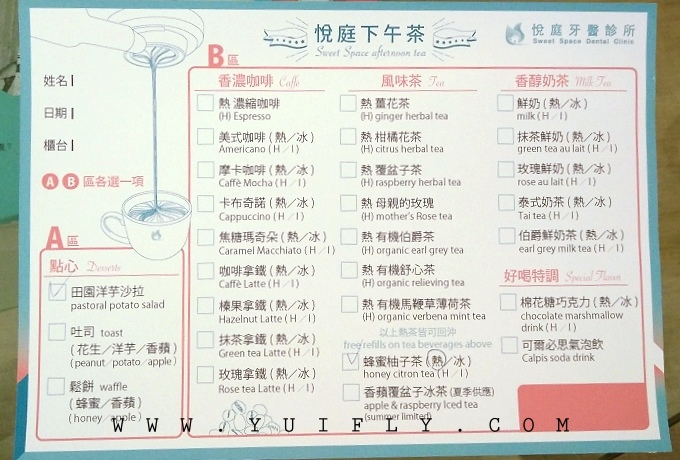 悅庭下午茶
Sweet Space afternoon tea
悅庭牙醫診所
Sweet Space Dental Clinic
姓名
日期
櫃台
A B 區各選一項
A區
點心 Desserts
田園洋芋沙拉
pastoral potato salad
吐司 toast
(花生／洋芋／香蘋)
(peanut／potato／apple)
鬆餅 waffle
(蜂蜜／香蘋)
(honey／apple)
B區
香濃咖啡 Caffé
熱 濃縮咖啡
(H) Espresso
美式咖啡 (熱／冰)
Americano (H／I)
摩卡咖啡 (熱／冰)
Caffè Mocha (H／I)
卡布奇諾 (熱／冰)
Cappuccino (H／I)
焦糖瑪奇朵 (熱／冰)
Caramel Macchiato (H／I)
咖啡拿鐵 (熱／冰)
Caffè Latte (H／I)
榛果拿鐵 (熱／冰)
Hazelnut Latte (H／I)
抹茶拿鐵 (熱／冰)
Green tea Latte (H／I)
玫瑰拿鐵 (熱／冰)
Rose tea Latte (H／I)
風味茶 Tea
熱 薑花茶
(H) ginger herbal tea
熱 柑橘花茶
(H) citrus herbal tea
熱 覆盆子茶
(H) raspberry herbal tea
熱 母親的玫瑰
(H) mother's Rose tea
熱 有機伯爵茶
(H) organic earl grey tea
熱 有機舒心茶
(H) organic relieving tea
熱 有機馬鞭草薄荷茶
(H) organic verbena mint tea
以上熱茶皆可回沖
free refills on tea beverages above
蜂蜜柚子茶 (熱／冰)
honey citron tea (H／I)
香蘋覆盆子冰茶 (夏季供應)
apple & raspberry Iced tea
(summer limited)
香醇奶茶 Milk Tea
鮮奶 (熱／冰)
milk (H／I)
抹茶鮮奶 (熱／冰)
green tea au lait (H／I)
玫瑰鮮奶 (熱／冰)
rose au lait (H／I)
泰式奶茶 (熱／冰)
Tai tea (H／I)
伯爵鮮奶茶 (熱／冰)
earl grey milk tea (H／I)
好喝特調 Special Flavor
棉花糖巧克力 (熱／冰)
chocolate marshmallow
drink (H／I)
可爾必思氣泡飲
Calpis soda drink
WWW.YUIFLY.COM